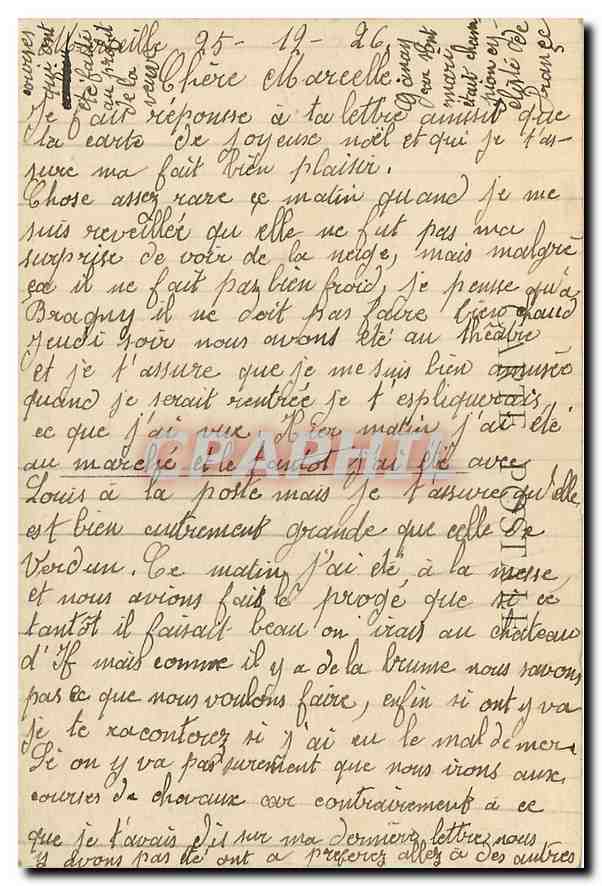 Marseille 25-12-26.
Chère Marcelle.
Je fait réponsse à ta lettre ainsit que
ta carte de joyeuse noël et qui je t'as-
sure ma fait bien plaisir.
Chose assez rare çe matin quand je me
suis reveillée qu'elle ne fut pas ma
surprise de voir de la neige, mais malgré
ça il ne fait pas bien froid, je pense qu'à
Bragny il ne doit pas faire bien chaud
jeudi soir nous avons été au théâtre
et je t'assure que je me suis bien amusée
quand je serait rentrée je t'espliquerais,
ce que j'ai vue. Hier matin j'ai été
au marché et le tantot j'ai été avec
Louis à la poste mais je t'assure qu'elle
est bien autrement grande que celle de
Verdun. Ce matin j'ai été à la messe,
et nous avions fait le progé que si ce
tantôt il faisait beau on irais au château
d'If mais comme il y a de la brume nous savons
pas ce que nous voulons faire, enfin si ont y va
je te raconterez si j'ai eu le mal de mer.
Si on y va pas surement que nous irons aux
courses de chevaux car contrairement à ce
que je t'avais dis sur ma dernière lettre nous
y avons pas été ont a préférez allez à des autres
courses
qui ont
été faite
au profit
de la
veuve
Ganay
son mari
était cham
pion cy-
cliste de
France
CARTE POSTALE
CPAPHIL